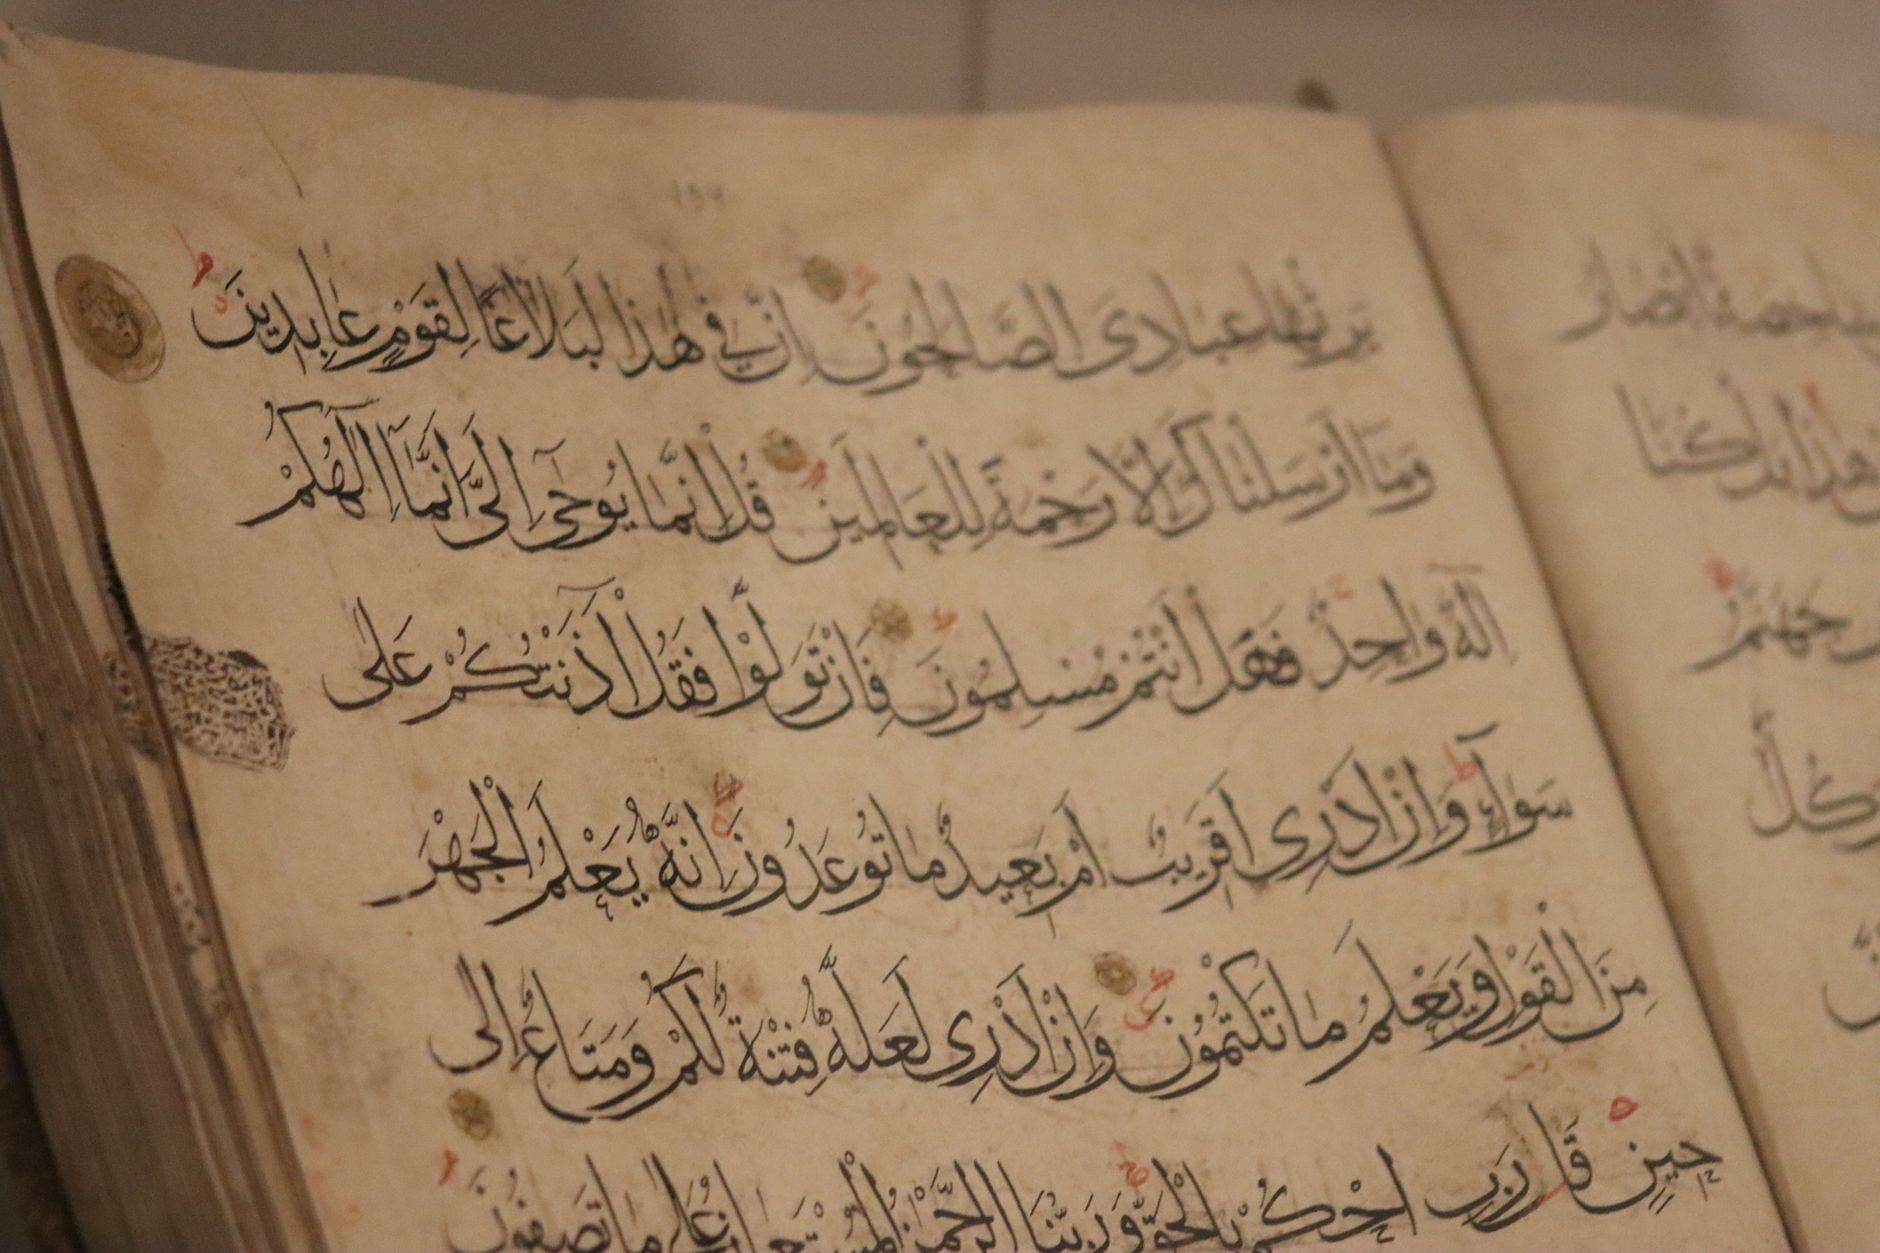 أَبْصَارُ
هٰذَا بَلْ كُنَّا
جَهَنَّمَ
وَكُلٌّ
يَرِثُهَا عِبَادِىَ الصَّالِحُونَ اِنَّ فِي هٰذَا لَبَلَاغًا لِقَوْمٍ عَابِدِينَ
وَمَآ اَرْسَلْنَاكَ اِلَّا رَحْمَةً لِلْعَالَمِينَ قُلْ اِنَّمَا يُوحٰٓى اِلَىَّ اَنَّمَآ اِلٰهُكُمْ
اِلٰهٌ وَاحِدٌ فَهَلْ اَنْتُمْ مُسْلِمُونَ فَاِنْ تَوَلَّوْا فَقُلْ اٰذَنْتُكُمْ عَلٰى
سَوَآءٍ وَاِنْ اَدْرِى اَقَرِيبٌ اَمْ بَعِيدٌ مَا تُوعَدُونَ اِنَّهُ يَعْلَمُ الْجَهْرَ
مِنَ الْقَوْلِ وَيَعْلَمُ مَا تَكْتُمُونَ وَاِنْ اَدْرِى لَعَلَّهُ فِتْنَةٌ لَكُمْ وَمَتَاعٌ اِلٰى
حِينٍ قَالَ رَبِّ احْكُمْ بِالْحَقِّ وَرَبُّنَا الرَّحْمٰنُ الْمُسْتَعَانُ عَلٰى مَا تَصِفُونَ